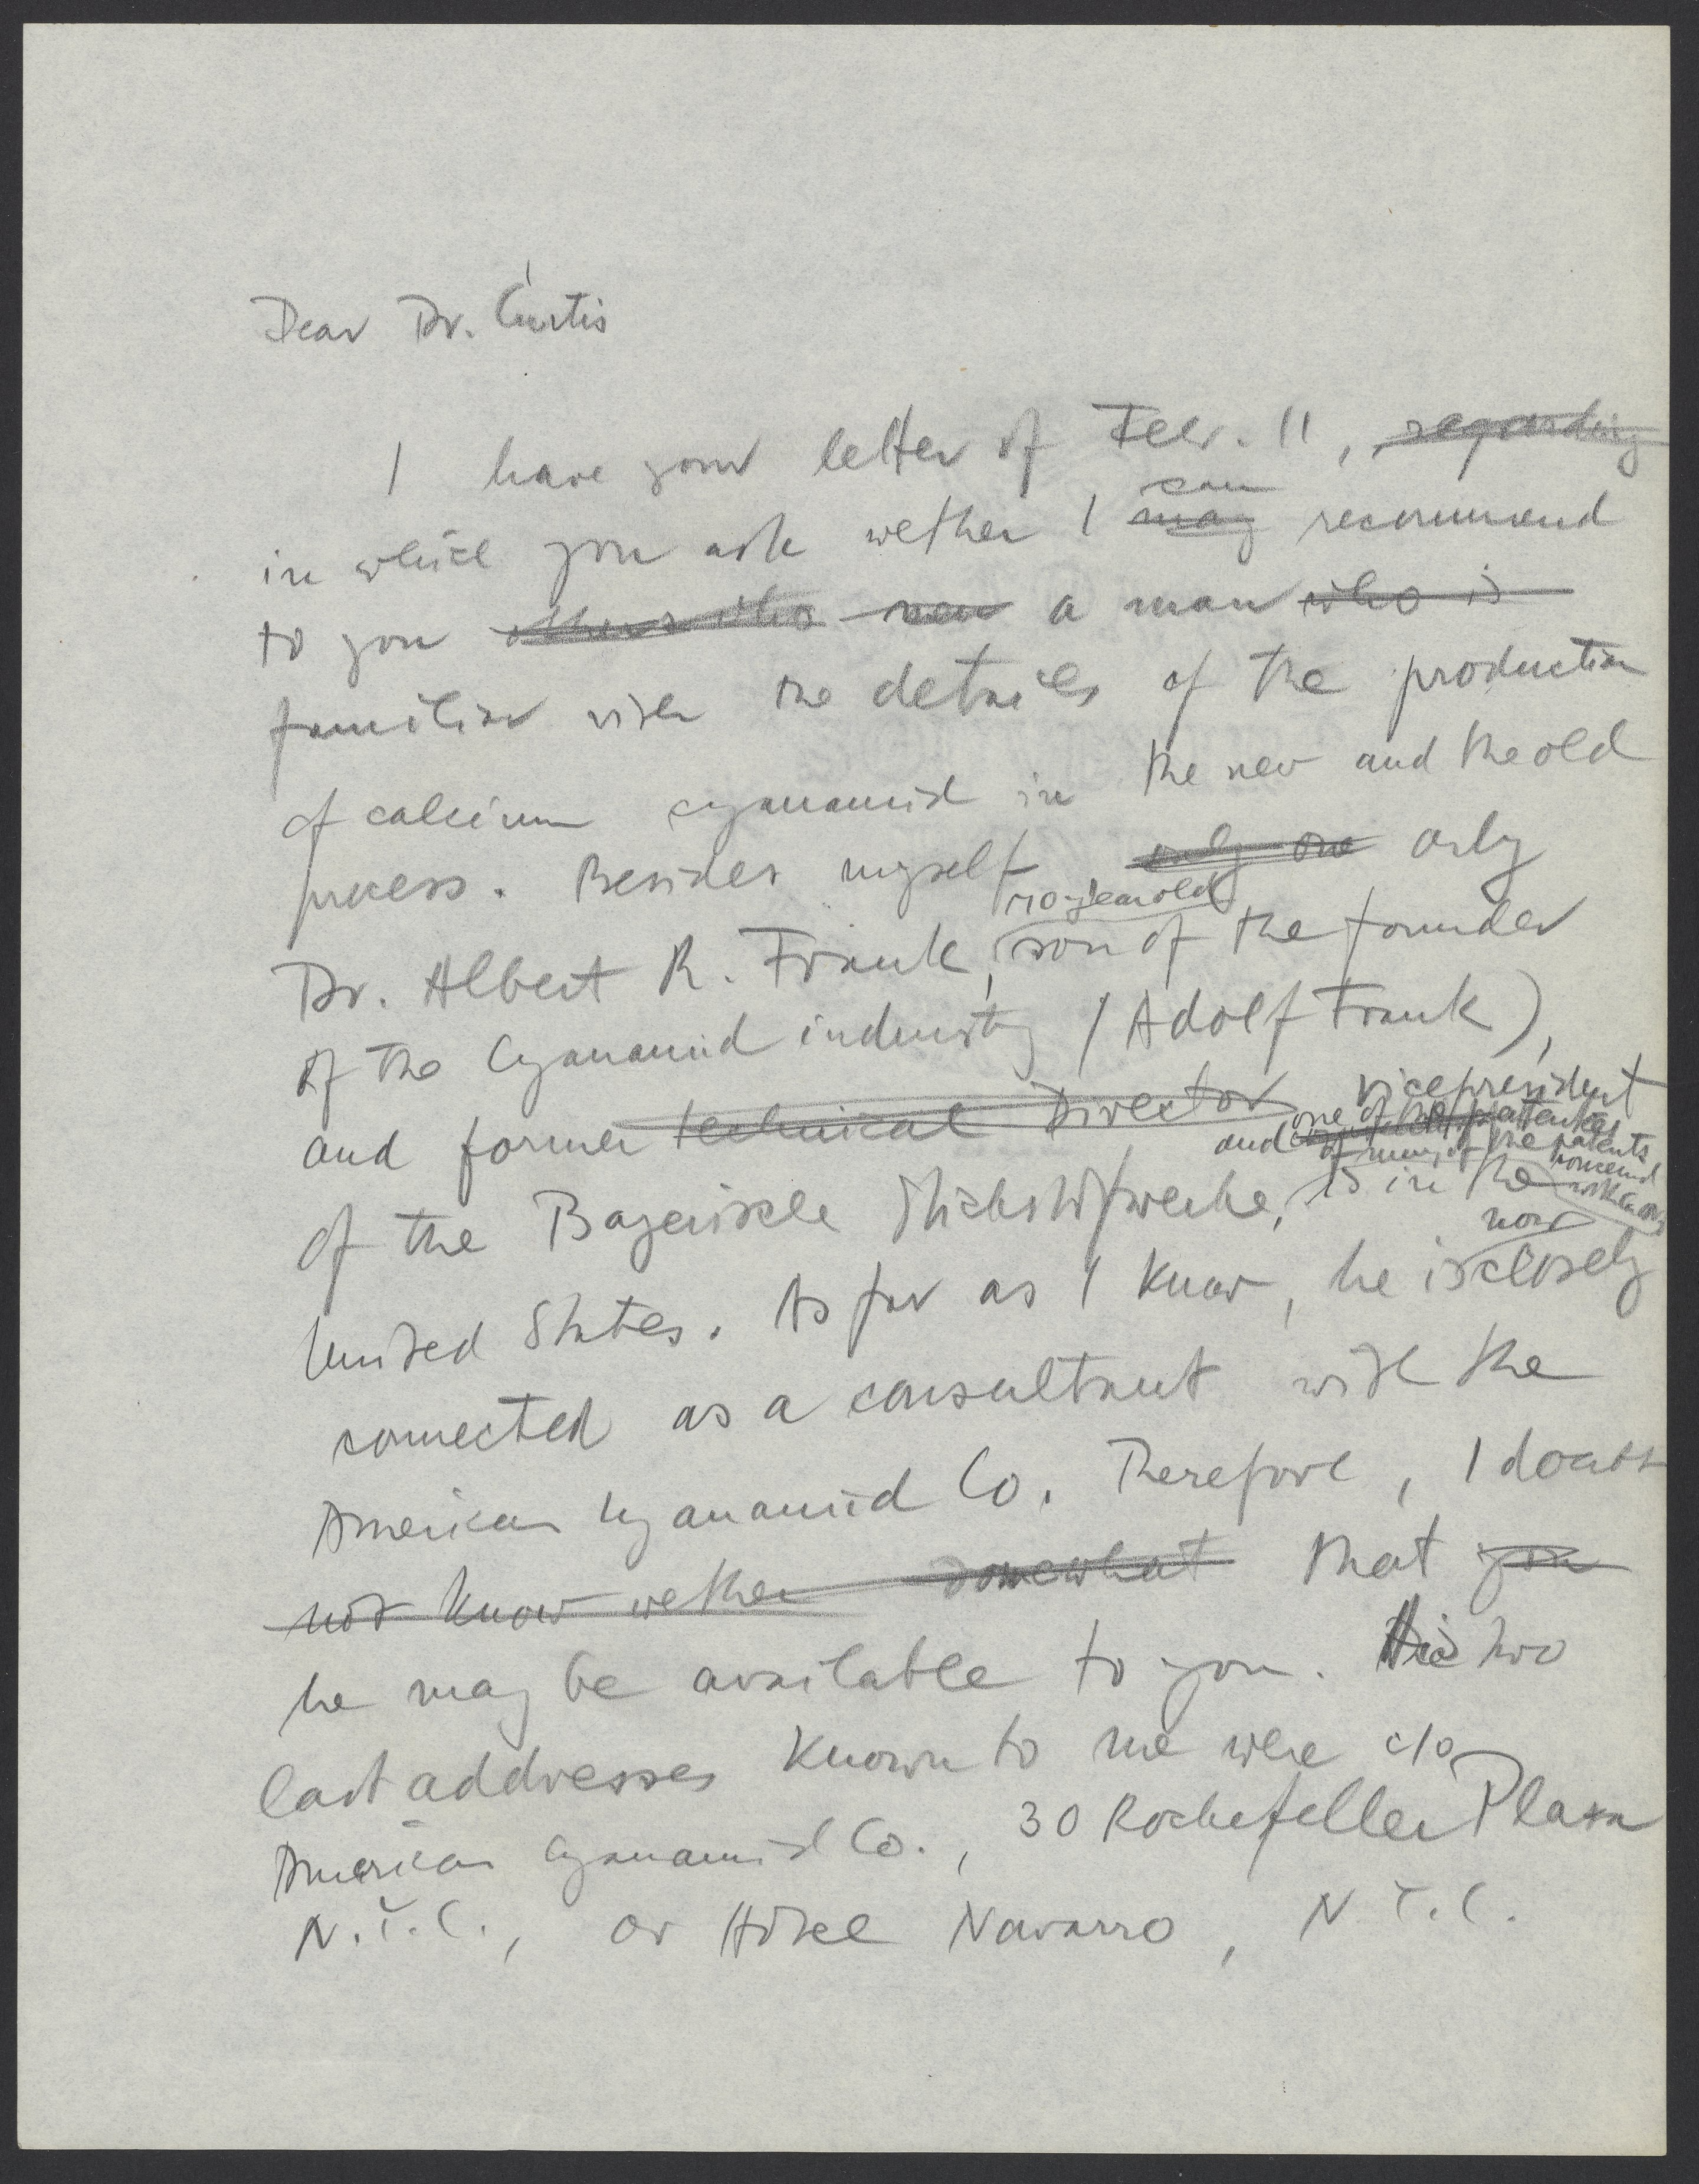 Dear Dr. Curtis
I have your letter of Febr. 11, regarding
can
in which you ask wether I may recommend
to you others who man a man who is
familiar with the details of the production
of calcium cyanamid in the new and the old
process. Besides myself only one only
70-year old
Dr. Albert R. Frank, son of the founder
of the Cyanamid industry (Adolf Frank),
and former technical Director vicepresident
and one of the patentees
of many of the patents
of the Bayerische Stickstoffwerke, is in the
now
United States. As far as I know, he is closely
connected as a consultant with the
American Cyanamid Co. Therefore, I doubt
not know wether somewhat that you
he may be available to you. His two
last addresses known to me were c/o
American Cyanamid Co., 30 Rockefeller Plaza
N.Y.C., or Hotel Navarro, N.Y.C.